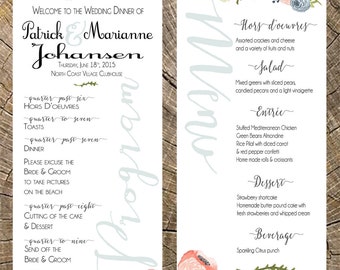 Welcome to the Wedding Dinner of
Patrick & Marianne
Johansen
Thursday, June 18th, 2015
North Coast Village Clubhouse
quarter past six
Hors D'oeuvres
quarter to seven
Toasts
quarter past seven
Dinner
Please excuse the
Bride & Groom
to take pictures
on the beach
quarter past eight
Cutting of the cake
& Dessert
quarter to nine
Send off the
Bride & Groom
Program
Menu
Hors d'oeuvres
Assorted crackers and cheese
and a variety of fruits and nuts.
Salad
Mixed greens with sliced pears,
candied pecans and a light vinaigrette
Entrée
Stuffed Mediterranean Chicken
Green Beans Almondine
Rice Pilaf with diced carrot
& red pepper confetti
Home made rolls & croissants
Dessert
Strawberry shortcake
Homemade butter pound cake with
fresh strawberries and whipped cream
Beverage
Sparkling Citrus punch